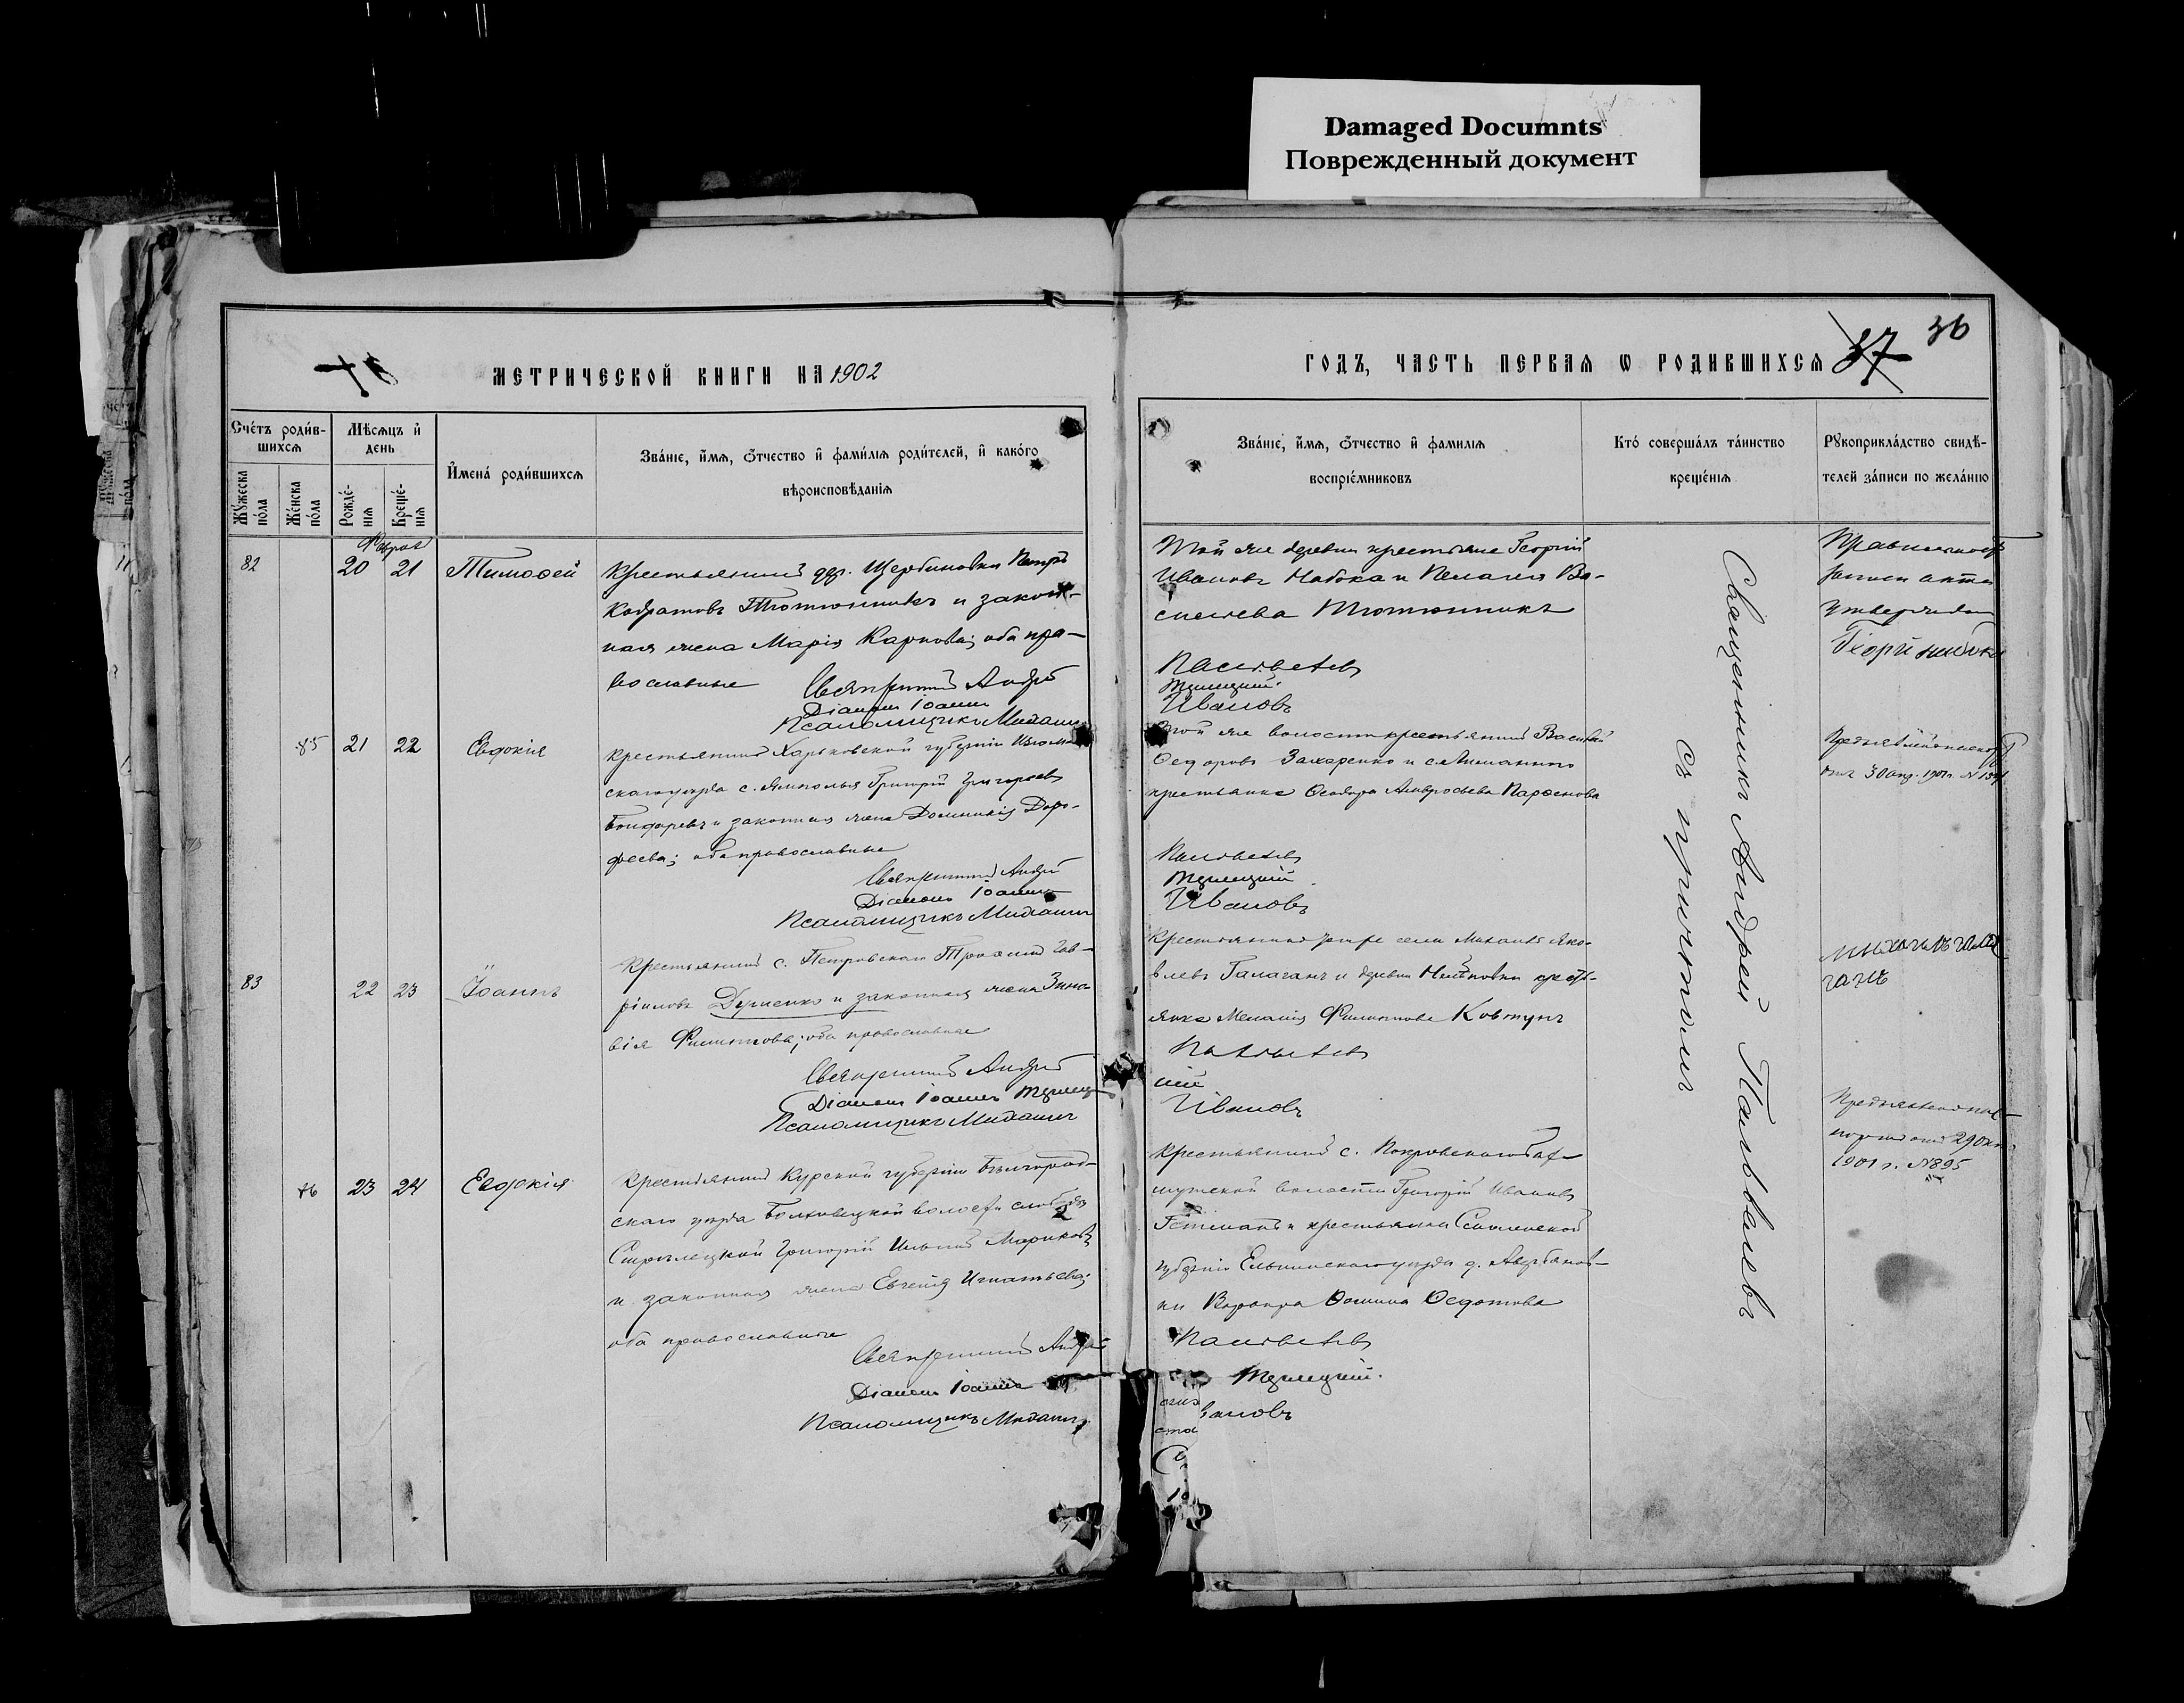 Damaged Documnts
Поврежденный документ
36
37
МЕТРИЧЕСКОЙ КНИГИ НА 1902
ГОДЪ, ЧАСТЬ ПЕРВАЯ Ѡ РОДИВШИХСЯ
Счéтъ роди́в-
шихся
Мѣсяцъ и҆
день
Мꙋжеска
по́ла
Же́нска
по́ла
Рожде́-
нїя
Креще́-
нїя
И҆мена̀ роди́вшихся
Зва́нїе, и҆́мя, ѻ҆́тчество и҆ фами́лїя роди́телей, и҆ како́го
вѣроисповѣ́данїя
Зва́нїе, и҆́мя, ѻ҆́тчество и҆ фами́лїя
воспрїе́мниковъ
Кто̀ соверша́лъ та́инство
креще́нїя
Рꙋкоприкла́дство свидѣ́-
телей за́писи по жела́нїю
Февраль
82
20 21
Тимоѳей
Крестьянинъ дер. Щербиновки Петръ
Кодратовъ Тютюнникъ и закон-
ная жена Марія Карпова; оба пра-
вославные
Священникъ Андрей
Діаконъ Іоаннъ
Псаломщикъ Михаилъ
Той же деревни крестьяне Георгій
Ивановъ Набока и Пелагія Ва-
сильева Тютюнникъ
Пальвалевъ
Ивановъ
записи акта
85
21 22
Евдокія
Крестьянинъ Харьковской губерніи Изюм-
скаго уѣзда с. Ямполья Григорій Григорьевъ
Бондаревъ и законная жена Домникія Доро-
феева; оба православные
Священникъ Андрей
Діаконъ Іоаннъ
Псаломщикъ Михаилъ
Той же волости крестьянинъ Василій
Ѳедоровъ Захаренко и
крестьянка Ѳеодора Амвросьева
Пальвалевъ
Ивановъ
1901 г. №
83
22 23
Іоаннъ
Крестьянинъ с. Петровскаго Трофимъ Гав-
ріиловъ и законная жена Зино-
вія Филиппова; оба православные
Священникъ Андрей
Діаконъ Іоаннъ
Псаломщикъ Михаилъ
Крестьянинъ села Михаилъ Яко-
влевъ Галаганъ и деревни Нелѣповки кресть-
янка Меланія Филиппова Ковтунъ
Пальвалевъ
Ивановъ
86
23 24
Евдокія
Крестьянинъ Курской губерніи Бѣлгород-
скаго уѣзда Болховецкой волости слободы
Стрѣлецкой Григорій Ильинъ Мариковъ
и законная жена Евгенія Игнатьева;
оба православные
Священникъ Андрей
Діаконъ Іоаннъ
Псаломщикъ Михаилъ
Крестьянинъ с. Покровскаго Бах-
мутской волости Григорій Ивановъ
Гетманъ и крестьянка Смоленской
губерніи Ельнинскаго уѣзда д.
ки Варвара Ѳомина Ѳедотова
Пальвалевъ
1901 г. №895
Священникъ Андрей Пальвалевъ
съ причтомъ